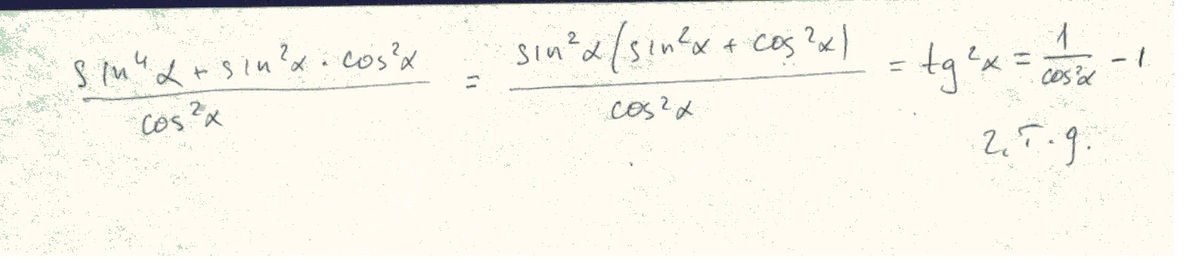 (sin⁴α + sin²α · cos²α) / cos²α = sin²α(sin²α + cos²α) / cos²α = tg²α = 1/cos²α − 1
г. т. д.